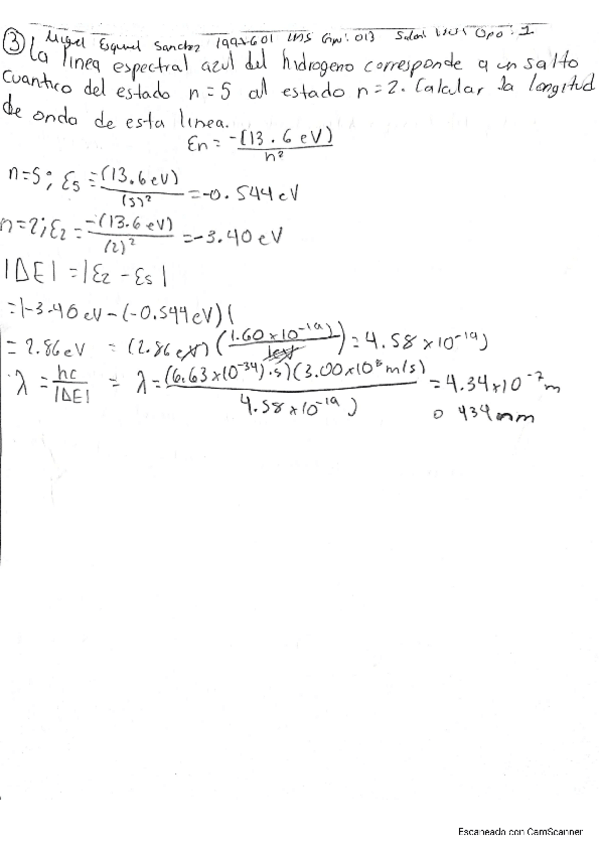 ③ Miguel Sanchez IMS Gpo: 013 Opo: 1
La linea espectral azul del hidrogeno corresponde a un salto
cuantico del estado n=5 al estado n=2. Calcular la longitud
de onda de esta linea.
En = -(13.6 eV) / n²
n=5; E5 = (13.6 eV) / (5)² = -0.544 eV
n=2; E2 = -(13.6 eV) / (2)² = -3.40 eV
|ΔE| = |E2 - E5|
= |-3.40 eV - (-0.544 eV)|
= 2.86 eV = (2.86 eV) (1.60 x 10⁻¹⁹ J / 1 eV) = 4.58 x 10⁻¹⁹ J
λ = hc / |ΔE| = λ = (6.63 x 10⁻³⁴ J · s)(3.00 x 10⁸ m/s) / 4.58 x 10⁻¹⁹ J = 4.34 x 10⁻⁷ m
o 434 nm
Escaneado con CamScanner